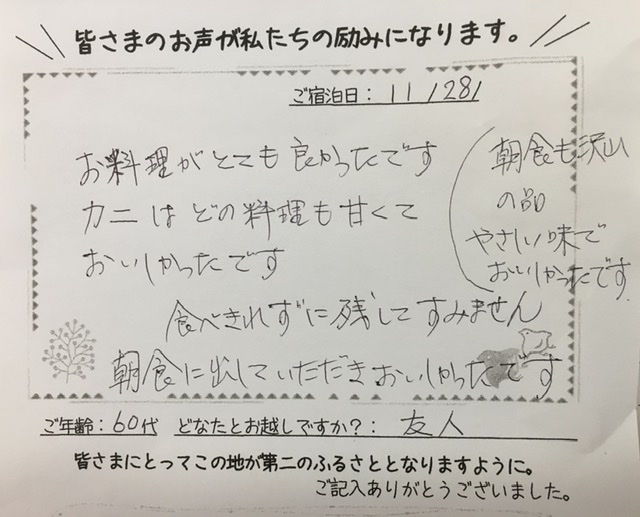 皆さまのお声が私たちの励みになります。
ご宿泊日：11/28/
お料理がとても良かったです
カニはどの料理も甘くて
おいしかったです
朝食も沢山
の品
やさしい味で
おいしかったです
食べきれずに残してすみません
朝食に出していただきおいしかったです
ご年齢：60代 どなたとお越しですか？：友人
皆さまにとってこの地が第二のふるさととなりますように。
ご記入ありがとうございました。